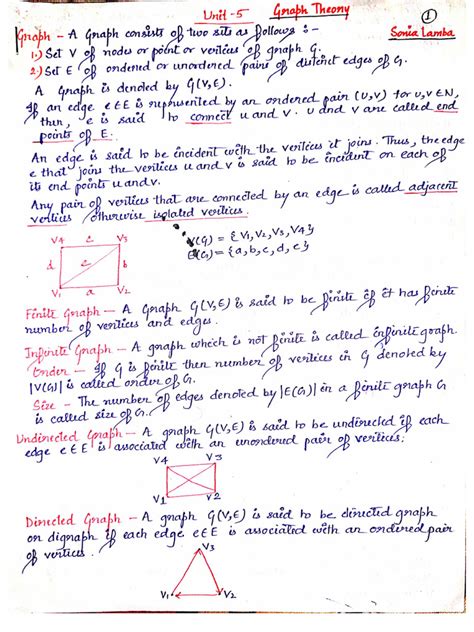 Unit-5 Graph Theory
1
Sonia Lamba
Graph - A Graph consists of two sits as follows :-
1.) Set V of nodes or point or vertices of graph G.
2.) Set E of ordered or unordered pairs of distinct edges of G.
A Graph is denoted by G(V,E).
If an edge e∈E is represented by an ordered pair (U,V) for u,v∈N,
then, e is said to connect u and v. u and v are called end
points of E.
An edge is said to be incident with the vertices it joins. Thus, the edge
e that joins the vertices u and v is said to be incident on each of
its end points u and v.
Any pair of vertices that are connected by an edge is called adjacent
vertices otherwise isolated vertices.
V4 c V3
d e b
V1 a V2
V(G) = {V1,V2,V3,V4}
E(G) = {a,b,c,d,e}
Finite Graph - A Graph G(V,E) is said to be finite if it has finite
number of vertices and edges.
Infinite Graph - A graph which is not finite is called infinite graph.
Order - If G is finite then number of vertices in G denoted by
|V(G)| is called order of G.
Size - The number of edges denoted by |E(G)| in a finite graph G
is called size of G.
Undirected Graph - A graph G(V,E) is said to be undirected if each
edge e∈E is associated with an unordered pair of vertices.
V4 V3
V1 V2
Directed Graph - A graph G(V,E) is said to be directed graph
or digraph if each edge e∈E is associated with an ordered pair
of vertices.
V3
V1 V2